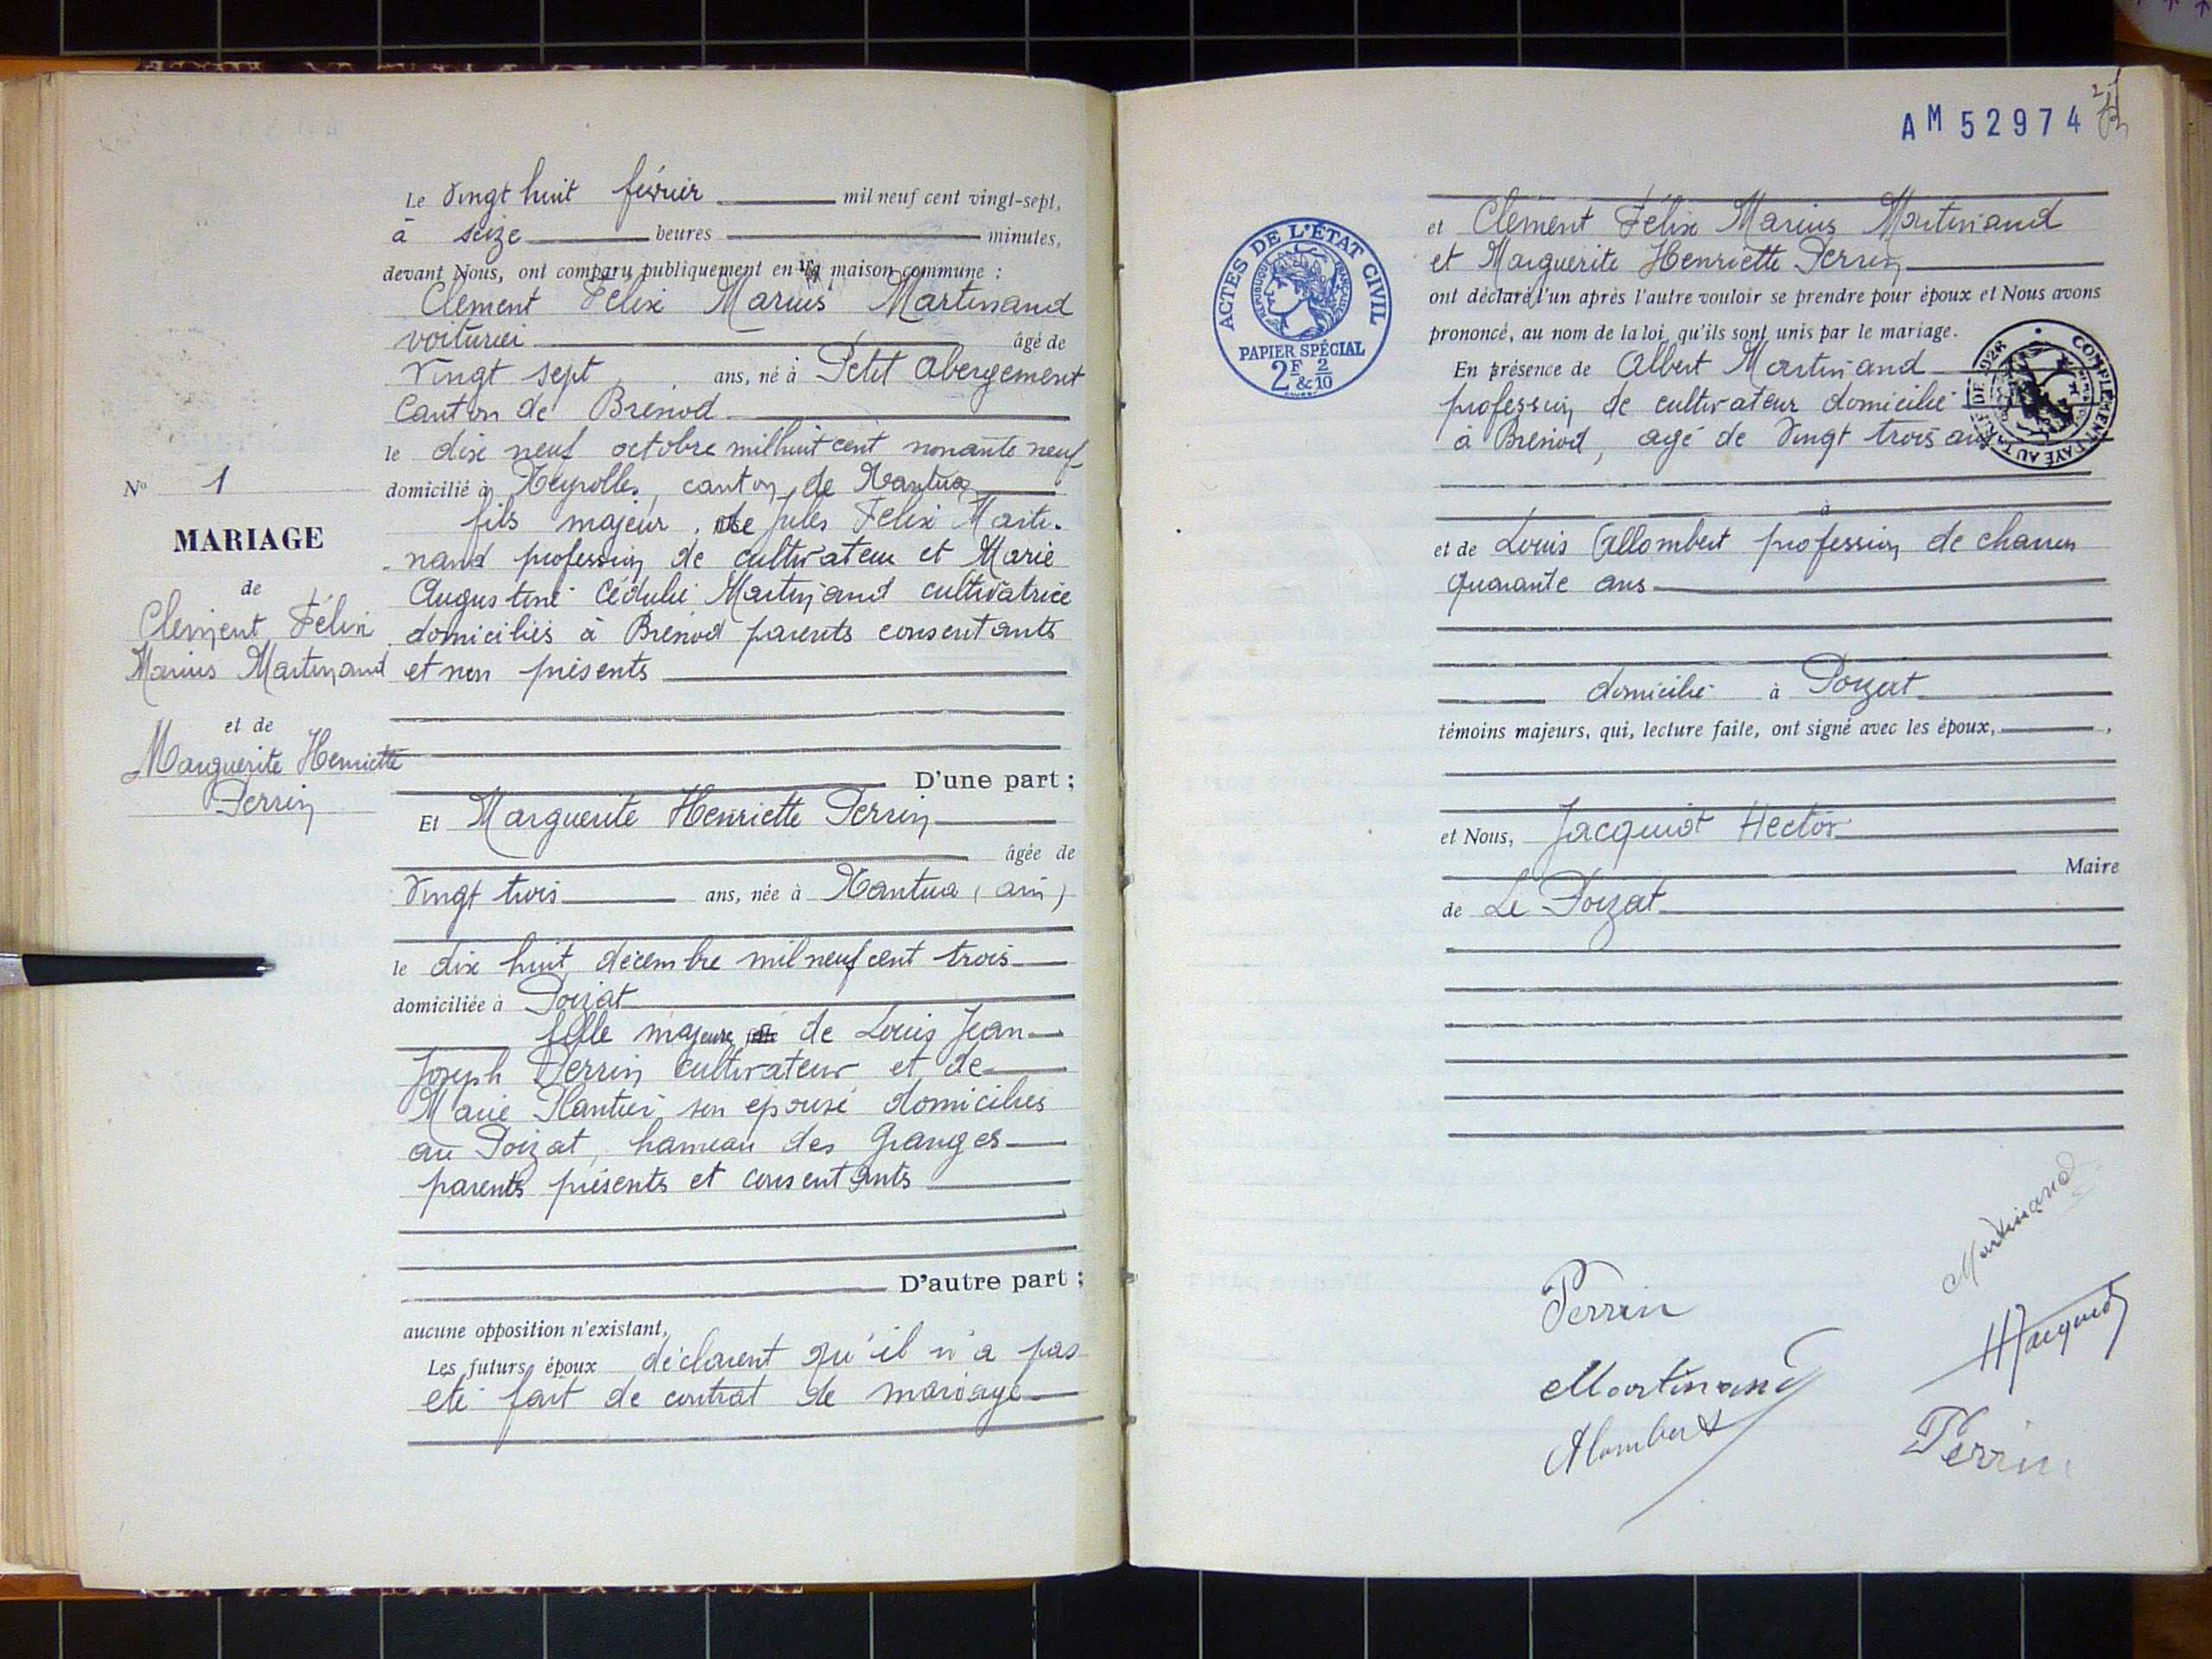 Le Vingt huit février mil neuf cent vingt-sept,
à seize heures minutes,
devant Nous, ont comparu publiquement en la maison commune :
Clement Felix Marius Martinand
voiturier âgé de
Vingt sept ans, né à Petit Abergement
Canton de Brenod
le dix neuf octobre mil huit cent nonante neuf
domicilié à Neyrolles, canton de Nantua
fils majeur de Jules Felix Marti-
nand profession de cultivateur et Marie
Augustine Cédulie Martinand cultivatrice
domiciliés à Brenod parents consentants
et non présents
D'une part ;
Et Marguerite Henriette Perrin
âgée de
Vingt trois ans, née à Nantua (ain)
le dix huit décembre mil neuf cent trois
domiciliée à Poizat
fille majeure de Louis Jean
Joseph Perrin cultivateur et de
Marie Plantier son épouse domiciliés
au Poizat, hameau des Granges
parents présents et consentants
D'autre part ;
aucune opposition n'existant,
Les futurs époux déclarent qu'il n'a pas
eté fait de contrat de mariage
N° 1
MARIAGE
de
Clement Félix
Marius Martinand
et de
Marguerite Henriette
Perrin
AM 52974
ACTES DE L'ÉTAT CIVIL
RÉPUBLIQUE FRANÇAISE
PAPIER SPÉCIAL
2F 2/10
&
COMPLÉMENT PAYÉ AU TARIF DE 1926
et Clement Félix Marius Martinand
et Marguerite Henriette Perrin
ont déclaré l'un après l'autre vouloir se prendre pour époux et Nous avons
prononcé, au nom de la loi, qu'ils sont unis par le mariage.
En présence de Albert Martinand
profession de cultivateur domicilié
à Brenod, agé de Vingt trois ans
à
et de Louis Allombert profession de charron
quarante ans
domicilié à Poizat
témoins majeurs, qui, lecture faite, ont signé avec les époux,
et Nous, Jacquiot Hector
Maire
de Le Poizat
Martinand
Perrin
HJacquiot
Martinand
Alombert
Perrin